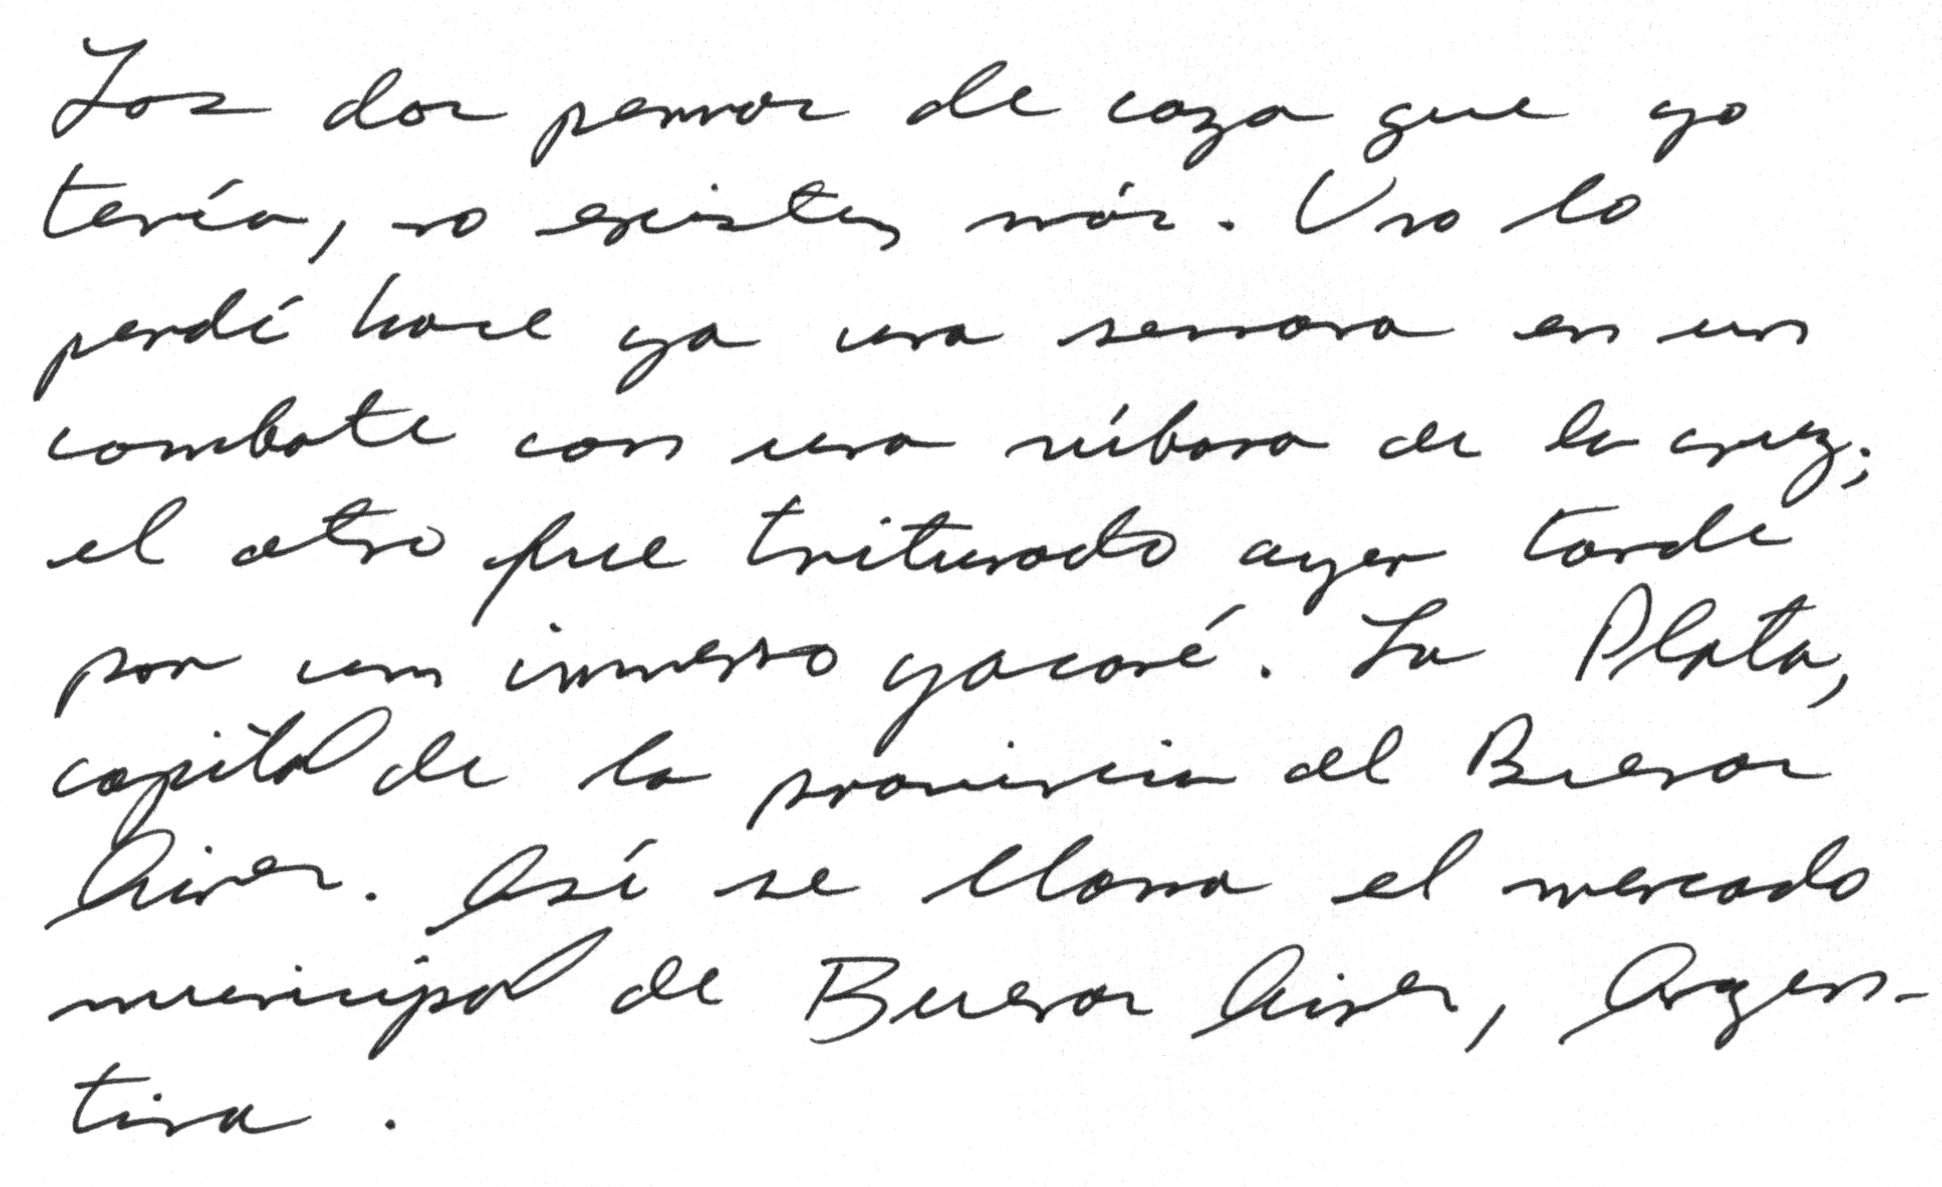 Los dos perros de caza que yo
tenía, no existen más. Uno lo
perdí hace ya una semana en un
combate con una víbora de la cruz;
el otro fue triturado ayer tarde
por un inmenso yacaré. La Plata,
capital de la provincia del Buenos
Aires. Así se llama el mercado
municipal de Buenos Aires, Argen-
tina.